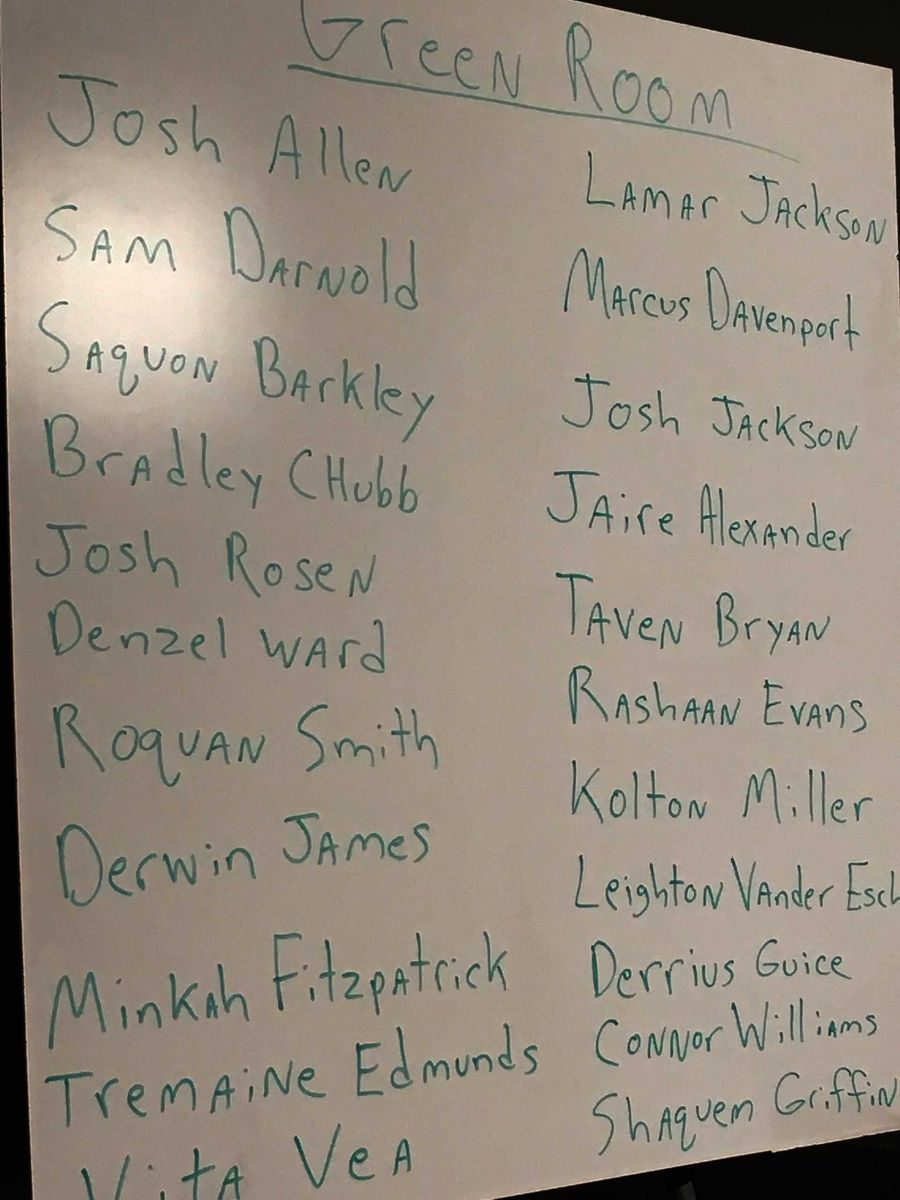 Green Room
Josh Allen
Sam Darnold
Saquon Barkley
Bradley Chubb
Josh Rosen
Denzel Ward
Roquan Smith
Derwin James
Minkah Fitzpatrick
Tremaine Edmunds
Vita Vea
Lamar Jackson
Marcus Davenport
Josh Jackson
Jaire Alexander
Taven Bryan
Rashaan Evans
Kolton Miller
Leighton Vander Esch
Derrius Guice
Connor Williams
Shaquem Griffin